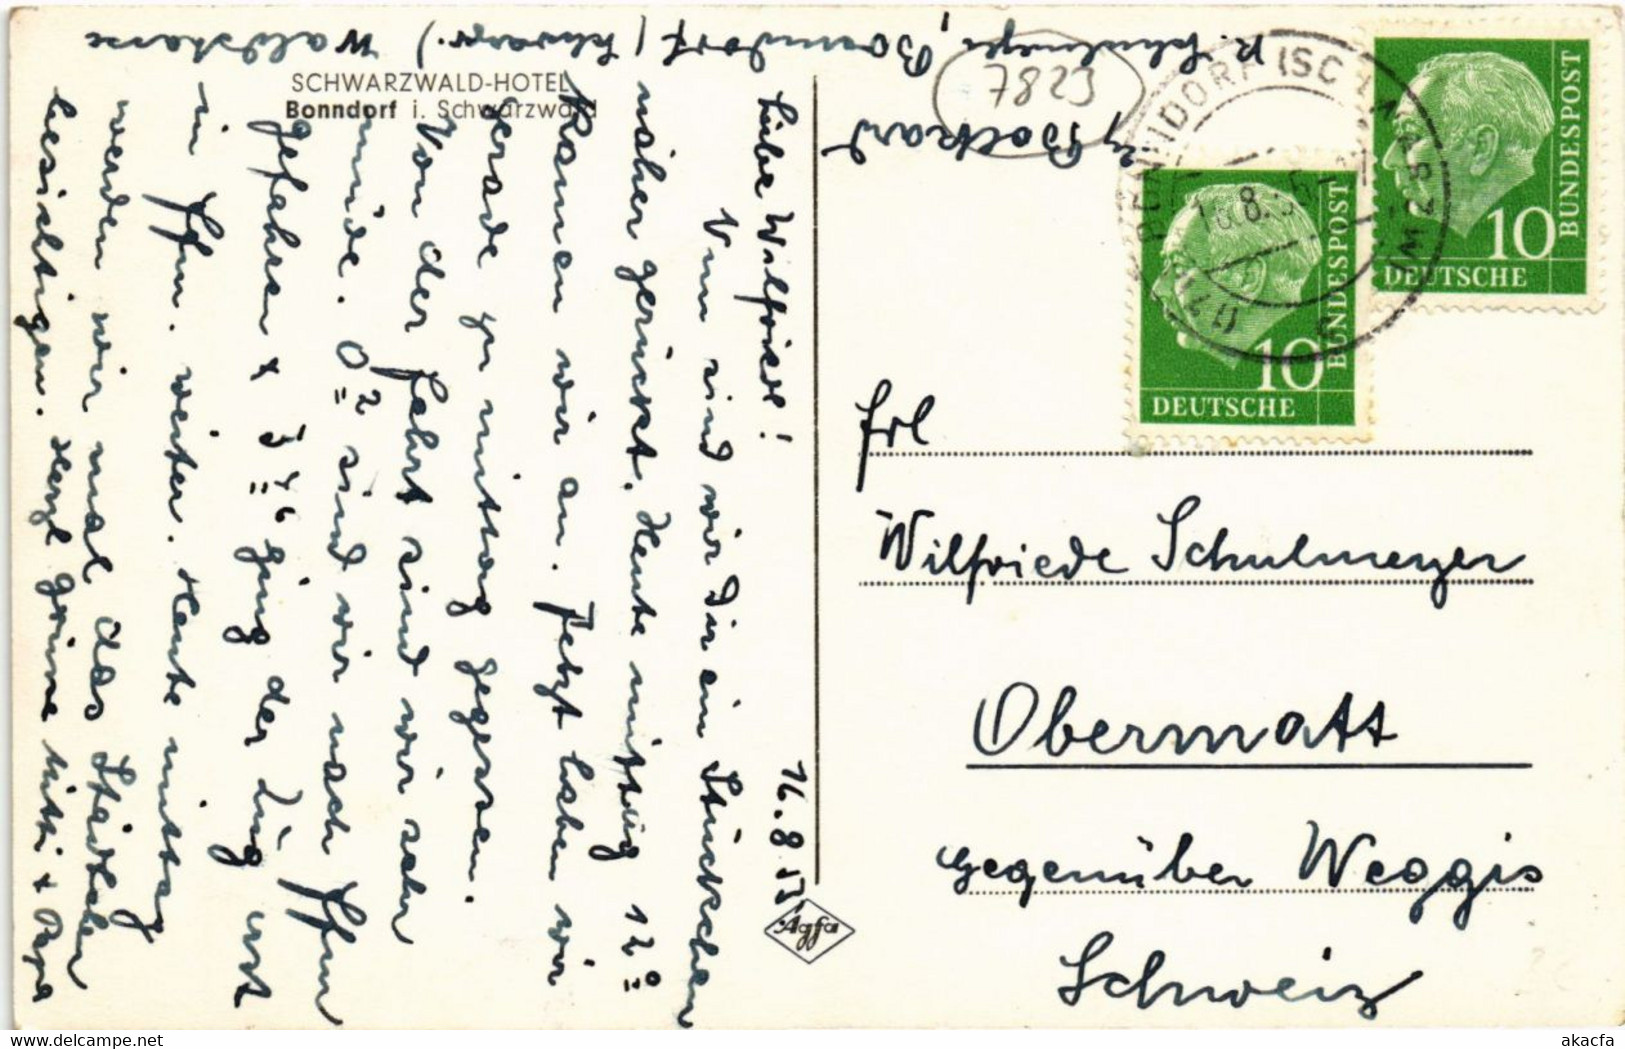 SCHWARZWALD-HOTEL
Bonndorf i. Schwarzwald
16.8.55
Liebe Wilfriede!
Nun sind wir Dir ein Stückchen
näher gerückt. Heute mittag 12º
kamen wir an. Jetzt haben wir
gerade zu mittag gegessen.
Von der Fahrt sind wir sehr
müde. 0² sind wir nach Ffm
gefahren + 3⁴⁶ ging der Zug erst
in Ffm. weiter. Heute mittag
werden wir mal das Städtchen
besichtigen. Herzl Grüsse Mutti + Papa
Schulmeyer, Bonndorf (Schwarzw.) Waldstrasse
7823
BONNDORF (SCHWARZW)
DEUTSCHE BUNDESPOST 10
DEUTSCHE BUNDESPOST 10
Frl
Wilfriede Schulmeyer
Obermatt
gegenüber Weggis
Schweiz
Agfa
akacfa